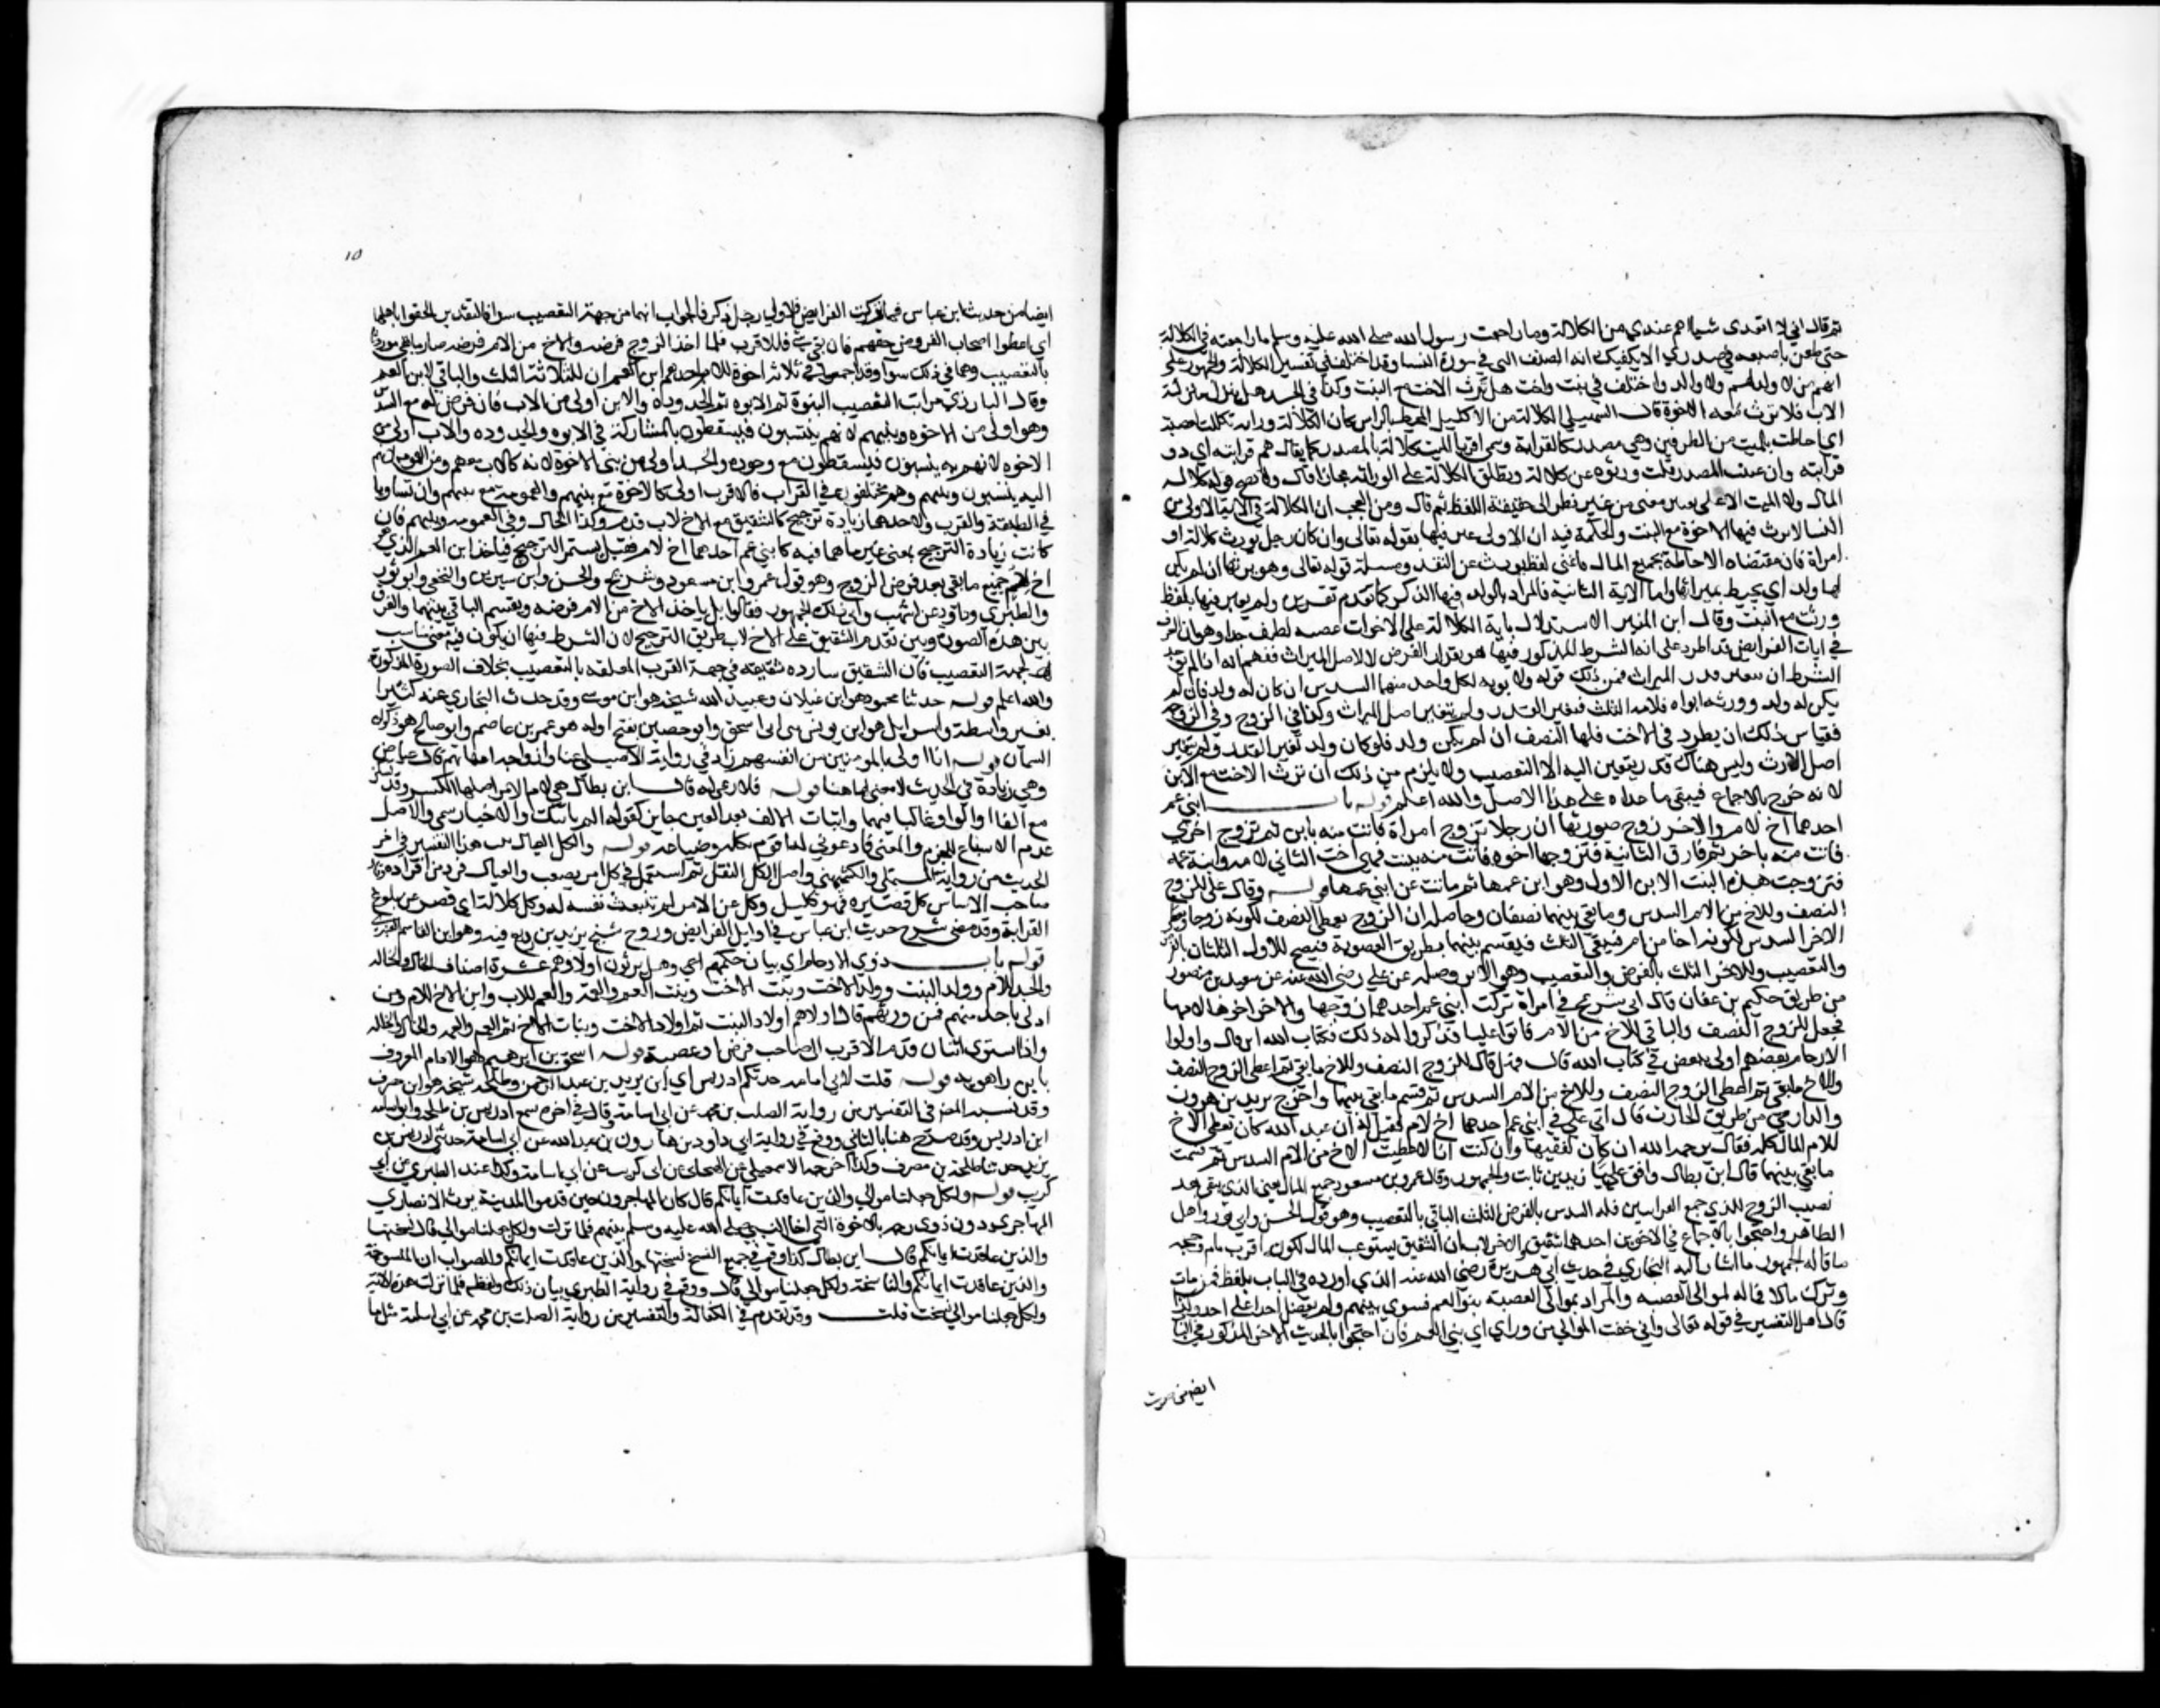 ثم قال اني لا ادع بعدي شيا اهم عندي من الكلالة وما راجعت رسول الله صلى الله عليه وسلم ما راجعته في الكلالة
حتى طعن باصبعه في صدري الا يكفيك اية الصيف التي في سورة النسا وقد اختلف في تفسير الكلالة والجمهور على
انه من لا ولد له ولا والد واختلف في بنت واخت هل ترث الاخت مع البنت وكذا في الجد هل ينزل منزلة
الاب فلا ترث معه الاخوة قال السهيلي الكلالة من الاكليل المحيط بالراس كان الكلالة وراثة تكللت العصبة
اي احاطت بالميت من الطرفين وهي مصدر كالقرابة وسمي اقربا الميت كلالة بالمصدر كما يقال هم قرابته اي ذو
قرابته وان عنيت المصدر قلت ورثوه عن كلالة وتطلق الكلالة على الوراثة مجازا قال ولا يصح قول كلالة
المال ولا الميت الا على معنى من غير نظر الى حقيقة اللفظ ثم قال ومن العجب ان الكلالة في الاية الاولى من
النسا لا يرث فيها الاخوة مع البنت والحكمة فيه ان الاولى عبر فيها بقوله تعالى وان كان رجل يورث كلالة او
امراة فان مقتضاه الاحاطة بجميع المال فاغنى لفظ يورث عن القيد ومسلة قوله تعالى وهو يرثها ان لم يكن
لها ولد اي يحيط بميراثها واما الاية الثانية فالمراد بالولد فيها الذكر كما تقدم تقريره ولم يعبر فيها بلفظ
ورث مع البنت وقال ابن المنير الاستدلال باية الكلالة على الاخوات عصبة لطيف جدا وهو ان العرف
في ايات الفرايض قد اطرد على ان الشرط المذكور فيها هو بقدر الفرض لا لاصل الميراث ففهم انه اذا لم يوجد
الشرط ان يتغير قدر الميراث فمن ذلك قوله ولابويه لكل واحد منهما السدس ان كان له ولد فان لم
يكن له ولد وورثه ابواه فلامه الثلث فتغير القدر ولم يتغير اصل الميراث وكذا في الزوج وفي الزوجة
فقياس ذلك ان يطرد في الاخت فلها النصف ان لم يكن ولد فلو كان ولد تغير القدر ولم يتغير
اصل الارث وليس هناك قدر يتعين اليه الا التعصيب ولا يلزم من ذلك ان ترث الاخت مع الابن
لانه خرج بالاجماع فيبقى ما عداه على هذا الاصل والله اعلم قوله باب ابني عم
احدهما اخ لام والاخر زوج صورتها ان رجلا تزوج امراة فاتت منه بابن ثم تزوج اخرى
فاتت منه باخر ثم فارق الثانية فتزوجها اخوه فاتت منه ببنت فهي اخت الثاني لامه وابنة عمه
فتزوجت هذه البنت الابن الاول وهو ابن عمها ثم ماتت عن ابني عمها قوله وقال علي للزوج
النصف وللاخ من الام السدس وما بقي بينهما نصفان وحاصله ان الزوج يعطى النصف لكونه زوجا ويعطى
الاخر السدس لكونه اخا من ام فيبقى الثلث فيقسم بينهما بطريق العصوبة فيصح للاول الثلثان بالفرض
والتعصيب وللاخر الثلث بالفرض والتعصيب وهو الاثر وصله عن علي رضي الله عنه عن سعيد بن منصور
من طريق حكيم بن عفان قال اتي شريح في امراة تركت ابني عم احدهما زوجها والاخر اخوها لامها
فجعل للزوج النصف والباقي للاخ من الام فاتوا عليا فذكروا له ذلك فكتاب الله او قال واولوا
الارحام بعضهم اولى ببعض في كتاب الله قال فهل قال للزوج النصف وللاخ ما بقي ثم اعطى الزوج النصف
والاخ ما بقي ثم اعطى الزوج النصف وللاخ من الام السدس ثم قسم ما بقي بينهما واخرج يزيد بن هرون
والدارمي من طريق الحارث قال اتي علي في ابني عم احدهما اخ لام فقيل له ان عبد الله كان يعطي الاخ
للام المال كله فقال يرحمه الله ان كان لفقيها وان كنت انا لاعطيت الاخ من الام السدس ثم قسمت
ما بقي بينهما قال ابن بطال وافق عليا زيد بن ثابت والجمهور وقال عمر وبن مسعود جميع المال يعني الذي يبقى بعد
نصيب الزوج للذي جمع القرابتين فله السدس بالفرض الثلث الباقي بالتعصيب وهو قول الحسن وابي ثور واهل
الظاهر واحتجوا بالاجماع في الاخوين احدهما شقيق والاخر لاب ان الشقيق يستوعب المال لكونه اقرب بام وحجة
ما قاله الجمهور ما اشار اليه البخاري في حديث ابي هريرة رضي الله عنه الذي اورده في الباب بلفظ فمن مات
وترك مالا فماله لموالي العصبة والمراد بموالي العصبة بنوا العم فسوى بينهم ولم يفضل احدا على احد وكذا
قال اهل التفسير في قوله تعالى واني خفت الموالي من وراي اي بني العم فان احتجوا بالحديث الاخر المذكور في الباب
ايضا من حديث
١٥
ايضا من حديث ابن عباس فما تركت الفرايض فلاولى رجل ذكر فالجواب انهما من جهة التعصيب سوا فالتقدير الحقوا باهلها
اي اعطوا اصحاب الفروض حقهم فان بقي شي فللاقرب فلما اخذ الزوج فرضه والاخ من الام فرضه صار ما بقي موروثا
بالتعصيب وهما في ذلك سوا وقد اجمعوا في ثلاثة اخوة للام احدهم ابن العم ان للثلاثة الثلث والباقي لابن العم
وقال المازري مراتب التعصيب البنوة ثم الابوة ثم الجدودة والابن اولى من الاب فان فرض له مع السدس
وهو اولى من الاخوة وبنيهم لانهم ينتسبون فيسقطون بالمشاركة في الابوة والجدودة والاب اولى من
الاخوة لانهم به ينتسبون فيسقطون مع وجوده والجد اولى من بني الاخوة لانه كالاب معهم ومن العمومة لانهم
اليه ينتسبون وبنيهم وهم مختلفون في القرابة فالاقرب اولى كالاخوة مع بنيهم والعمومة مع بنيهم وان تساووا
في الطبقة والقرب ولاحدهما زيادة ترجيح كالشقيق مع الاخ لاب قدم وكذا الحال وفي العمومة وبنيهم فان
كانت زيادة الترجيح بمعنى غير ما هما فيه كابني عم احدهما اخ لام فقيل يستمر الترجيح فياخذ ابن العم الذي هو
اخ لام جميع ما بقي بعد فرض الزوج وهو قول عمر وابن مسعود وشريح والحسن وابن سيرين والنخعي وابو ثور
والطبري وداود عن اشهب وابى ذلك الجمهور فقالوا بل ياخذ الاخ من الام فرضه ويقسم الباقي بينهما والفرق
بين هذه الصورة وبين تقدم الشقيق على الاخ لاب طريق الترجيح لان الشرط فيها ان يكون فيه معنى مناسب
لجهة التعصيب فان الشقيق شارك شقيقه في جهة القرب المتعلقة بالتعصيب بخلاف الصورة المذكورة
والله اعلم قوله حدثنا محمود هو ابن غيلان وعبيد الله شيخه هو ابن موسى وقد حدث البخاري عنه كثيرا
بغير واسطة واسرايل هو ابن يونس بن ابي اسحق وابو حصين بفتح اوله هو عثمن بن عاصم وابو صالح هو ذكوان
السمان قوله انا اولى بالمومنين من انفسهم زاد في رواية الاصيلي هنا وازواجه امهاتهم قال عياض
وهي زيادة في الحديث لا معنى لها هنا قوله فلادعى له قال ابن بطال هي لام الامر اصلها الكسر وقد تسكن
مع الفا والواو غالبا فيهما واثبات الالف بعد العين جايز كقوله الم ياتيك والاخبار تنمي والاصل
عدم الاشباع للجزم والمعنى فادعوني له اقوم بكله وضياعه قوله والكل العيال ثبت هذا التفسير في اخر
الحديث من رواية المستملي والكشميهني واصل الكل الثقل ثم استعمل في كل امر يصعب والعيال فرد من افراده وقال
صاحب الاساس كل بصره فهو كليل وكل عن الامر لم تنبعث نفسه له وكل كلالة اي قصر عن بلوغ
القرابة وقد مضى شرح حديث ابن عباس في اوايل الفرايض وروح شيخ يزيد بن زريع فيه وهو ابن القاسم العنبري
قوله باب ذوي الارحام اي بيان حكمهم اي وهل يرثون او لا وهم عشرة اصناف الخال والخالة
والجد للام وولد البنت وولد الاخت وبنت الاخ وبنت العم والعمة والعم للام وابن الاخ للام ومن
ادلى باحد منهم فمن ورثهم قال اولاهم اولاد البنت ثم اولاد الاخت وبنات الاخ ثم العم والعمة والخال والخالة
واذا استوى اثنان قدم الاقرب الى صاحب فرض او عصبة قوله اسحق بن ابرهيم هو الامام المعروف
بابن راهويه قوله قلت لابي اسامة حدثكم ادريس اي ابن يزيد بن عبد الرحمن وطلحة شيخه هو ابن مصرف
وقد نسبه المصنف في التفسير من رواية الصلت بن محمد عن ابي اسامة وقال في اخره سمع ادريس من طلحة وابو اسامة
ابن ادريس وقد صرح هنا بالثاني ووقع في رواية ابي داود عن هارون بن عبد الله عن ابي اسامة حدثني ادريس بن
يزيد حدثنا طلحة بن مصرف وكذا اخرجه الاسمعيلي عن الهنجاني عن ابي كريب عن ابي اسامة وكذا عند الطبري عن ابي
كريب قوله ولكل جعلنا موالي والذين عاقدت ايمانكم قال كان المهاجرون حين قدموا المدينة يرث الانصاري
المهاجري دون ذوي رحمه بالاخوة التي اخا النبي صلى الله عليه وسلم بينهم فلما نزلت ولكل جعلنا موالي قال نسختها
والذين عاقدت ايمانكم قال ابن بطال كذا وقع في جميع النسخ نسختها والذين عاقدت ايمانكم والصواب ان المنسوخة
والذين عاقدت ايمانكم والناسخة ولكل جعلنا موالي قال ووقع في رواية الطبري بيان ذلك ولفظه فلما نزلت هذه الاية
ولكل جعلنا موالي نسخت قلت وقد تقدم في الكفالة والتفسير من رواية الصلت بن محمد عن ابي اسامة مثل ما